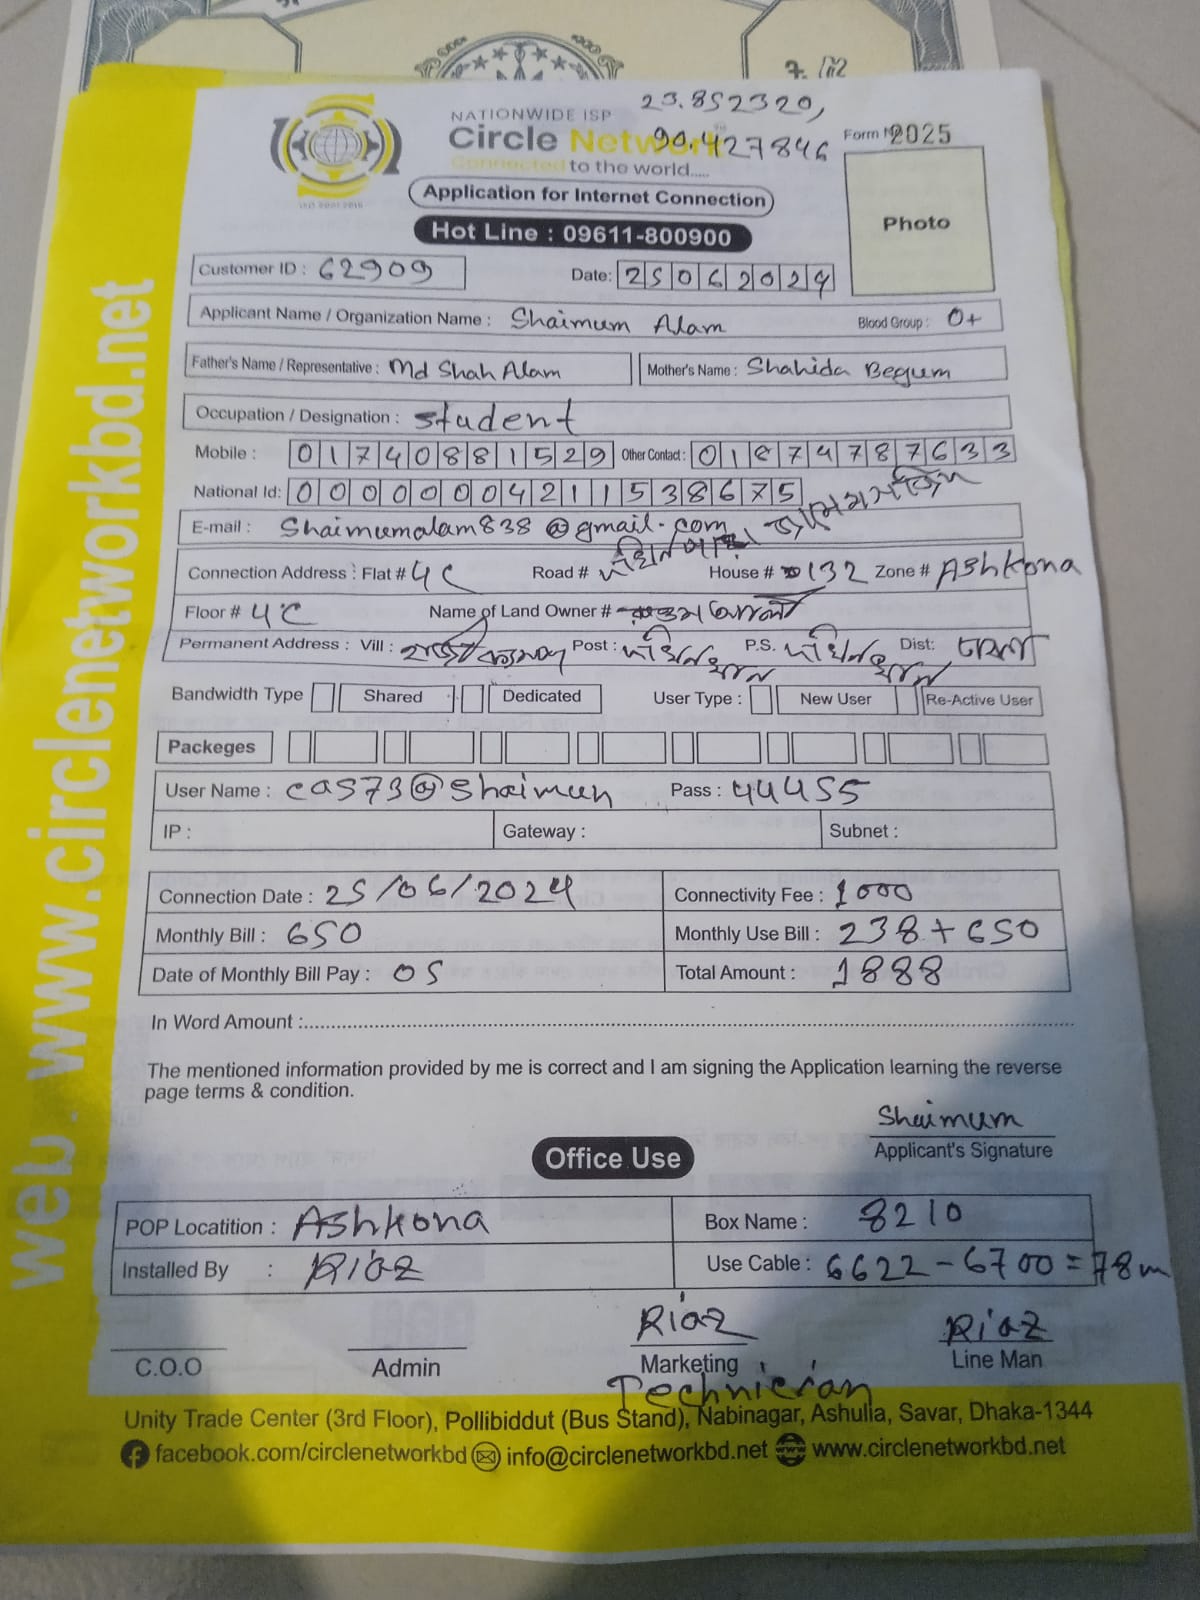 23.852320,
90.427846
NATIONWIDE ISP
Circle Network
Connected to the world.....
Form № 2025
Application for Internet Connection
Hot Line : 09611-800900
Photo
Customer ID : 62909
Date: 25062024
Applicant Name / Organization Name : Shaimum Alam Blood Group : O+
Father's Name / Representative : Md Shah Alam Mother's Name : Shahida Begum
Occupation / Designation : Student
Mobile : 01740881529 Other Contact : 01874787633
National Id: 00000004211538675
E-mail : Shaimumalam838@gmail.com
Connection Address : Flat # 4C Road # House # 132 Zone # Ashkona
Floor # 4C Name of Land Owner #
Permanent Address : Vill : Post : P.S. Dist:
Bandwidth Type Shared Dedicated User Type : New User Re-Active User
Packeges
User Name : cas73@shaimun Pass : 44455
IP : Gateway : Subnet :
Connection Date : 25/06/2024 Connectivity Fee : 1000
Monthly Bill : 650 Monthly Use Bill : 238+650
Date of Monthly Bill Pay : 05 Total Amount : 1888
In Word Amount :
The mentioned information provided by me is correct and I am signing the Application learning the reverse
page terms & condition.
Shaimum
Applicant's Signature
Office Use
POP Locatition : Ashkona Box Name : 8210
Installed By : Riaz Use Cable : 6622-6700=78m
Riaz Riaz
C.O.O Admin Marketing Line Man
Technician
Unity Trade Center (3rd Floor), Pollibiddut (Bus Stand), Nabinagar, Ashulia, Savar, Dhaka-1344
facebook.com/circlenetworkbd info@circlenetworkbd.net www.circlenetworkbd.net
web : www.circlenetworkbd.net